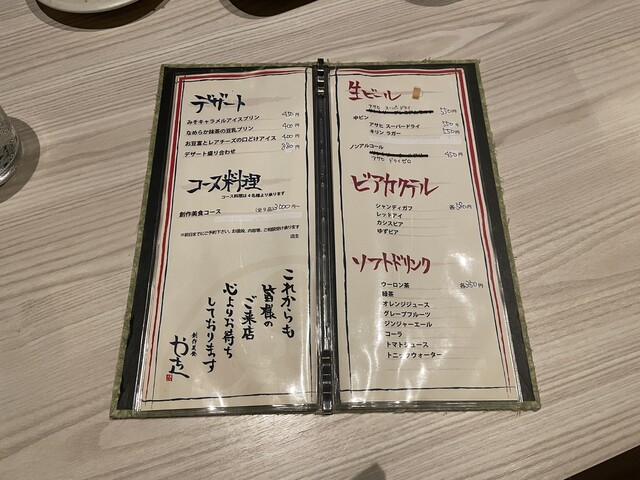 デザート
みそキャラメルアイスプリン 450円
なめらか抹茶の豆乳プリン 400円
お豆富とレアチーズの口どけアイス 400円
デザート盛り合わせ 880円
コース料理
コース料理は4名様より承ります
創作美食コース (全9品)3000円~
※前日までにご予約下さい。お値段、内容等、ご相談受け承ります
店主
これからも
皆様の
ご来店
心よりお待ち
しております
創作美食
生ビール
アサヒ スーパードライ 550円
中ビン
アサヒ スーパードライ 550円
キリン ラガー 550円
ノンアルコール
アサヒ ドライゼロ 450円
ビアカクテル
シャンディガフ 各580円
レッドアイ
カシスビア
ゆずビア
ソフトドリンク
ウーロン茶 各350円
緑茶
オレンジジュース
グレープフルーツ
ジンジャーエール
コーラ
トマトジュース
トニックウォーター